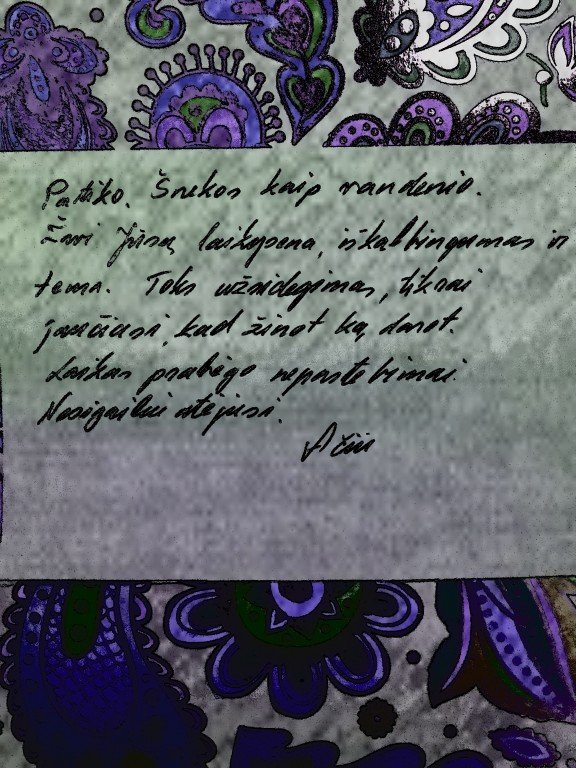 Patiko. Šnekos kaip vandenio.
Žavi Jūsų laikysena, iškalbingumas ir
tema. Toks užsidegimas, tikrai
jaučiasi, kad žinot ką darot.
Laikas prabėgo nepastebimai.
Nesigailiu atėjusi.
Ačiū